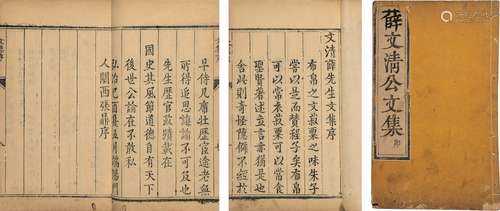 薛文清公文集
文清薛先生文集序
布帛之文菽粟之味朱子
嘗以是而贊程子矣布帛
可以當衣菽粟可以當食
聖賢著述立言亦猶是也
舍此則奇怪隱僻不經於
早侍几席壯歷宦途老無
所得追思論不可及也
先生歷官政蹟載在
國史其風節道德自有天下
後世公論在不敢私
弘治己酉門
人關西張鼎序